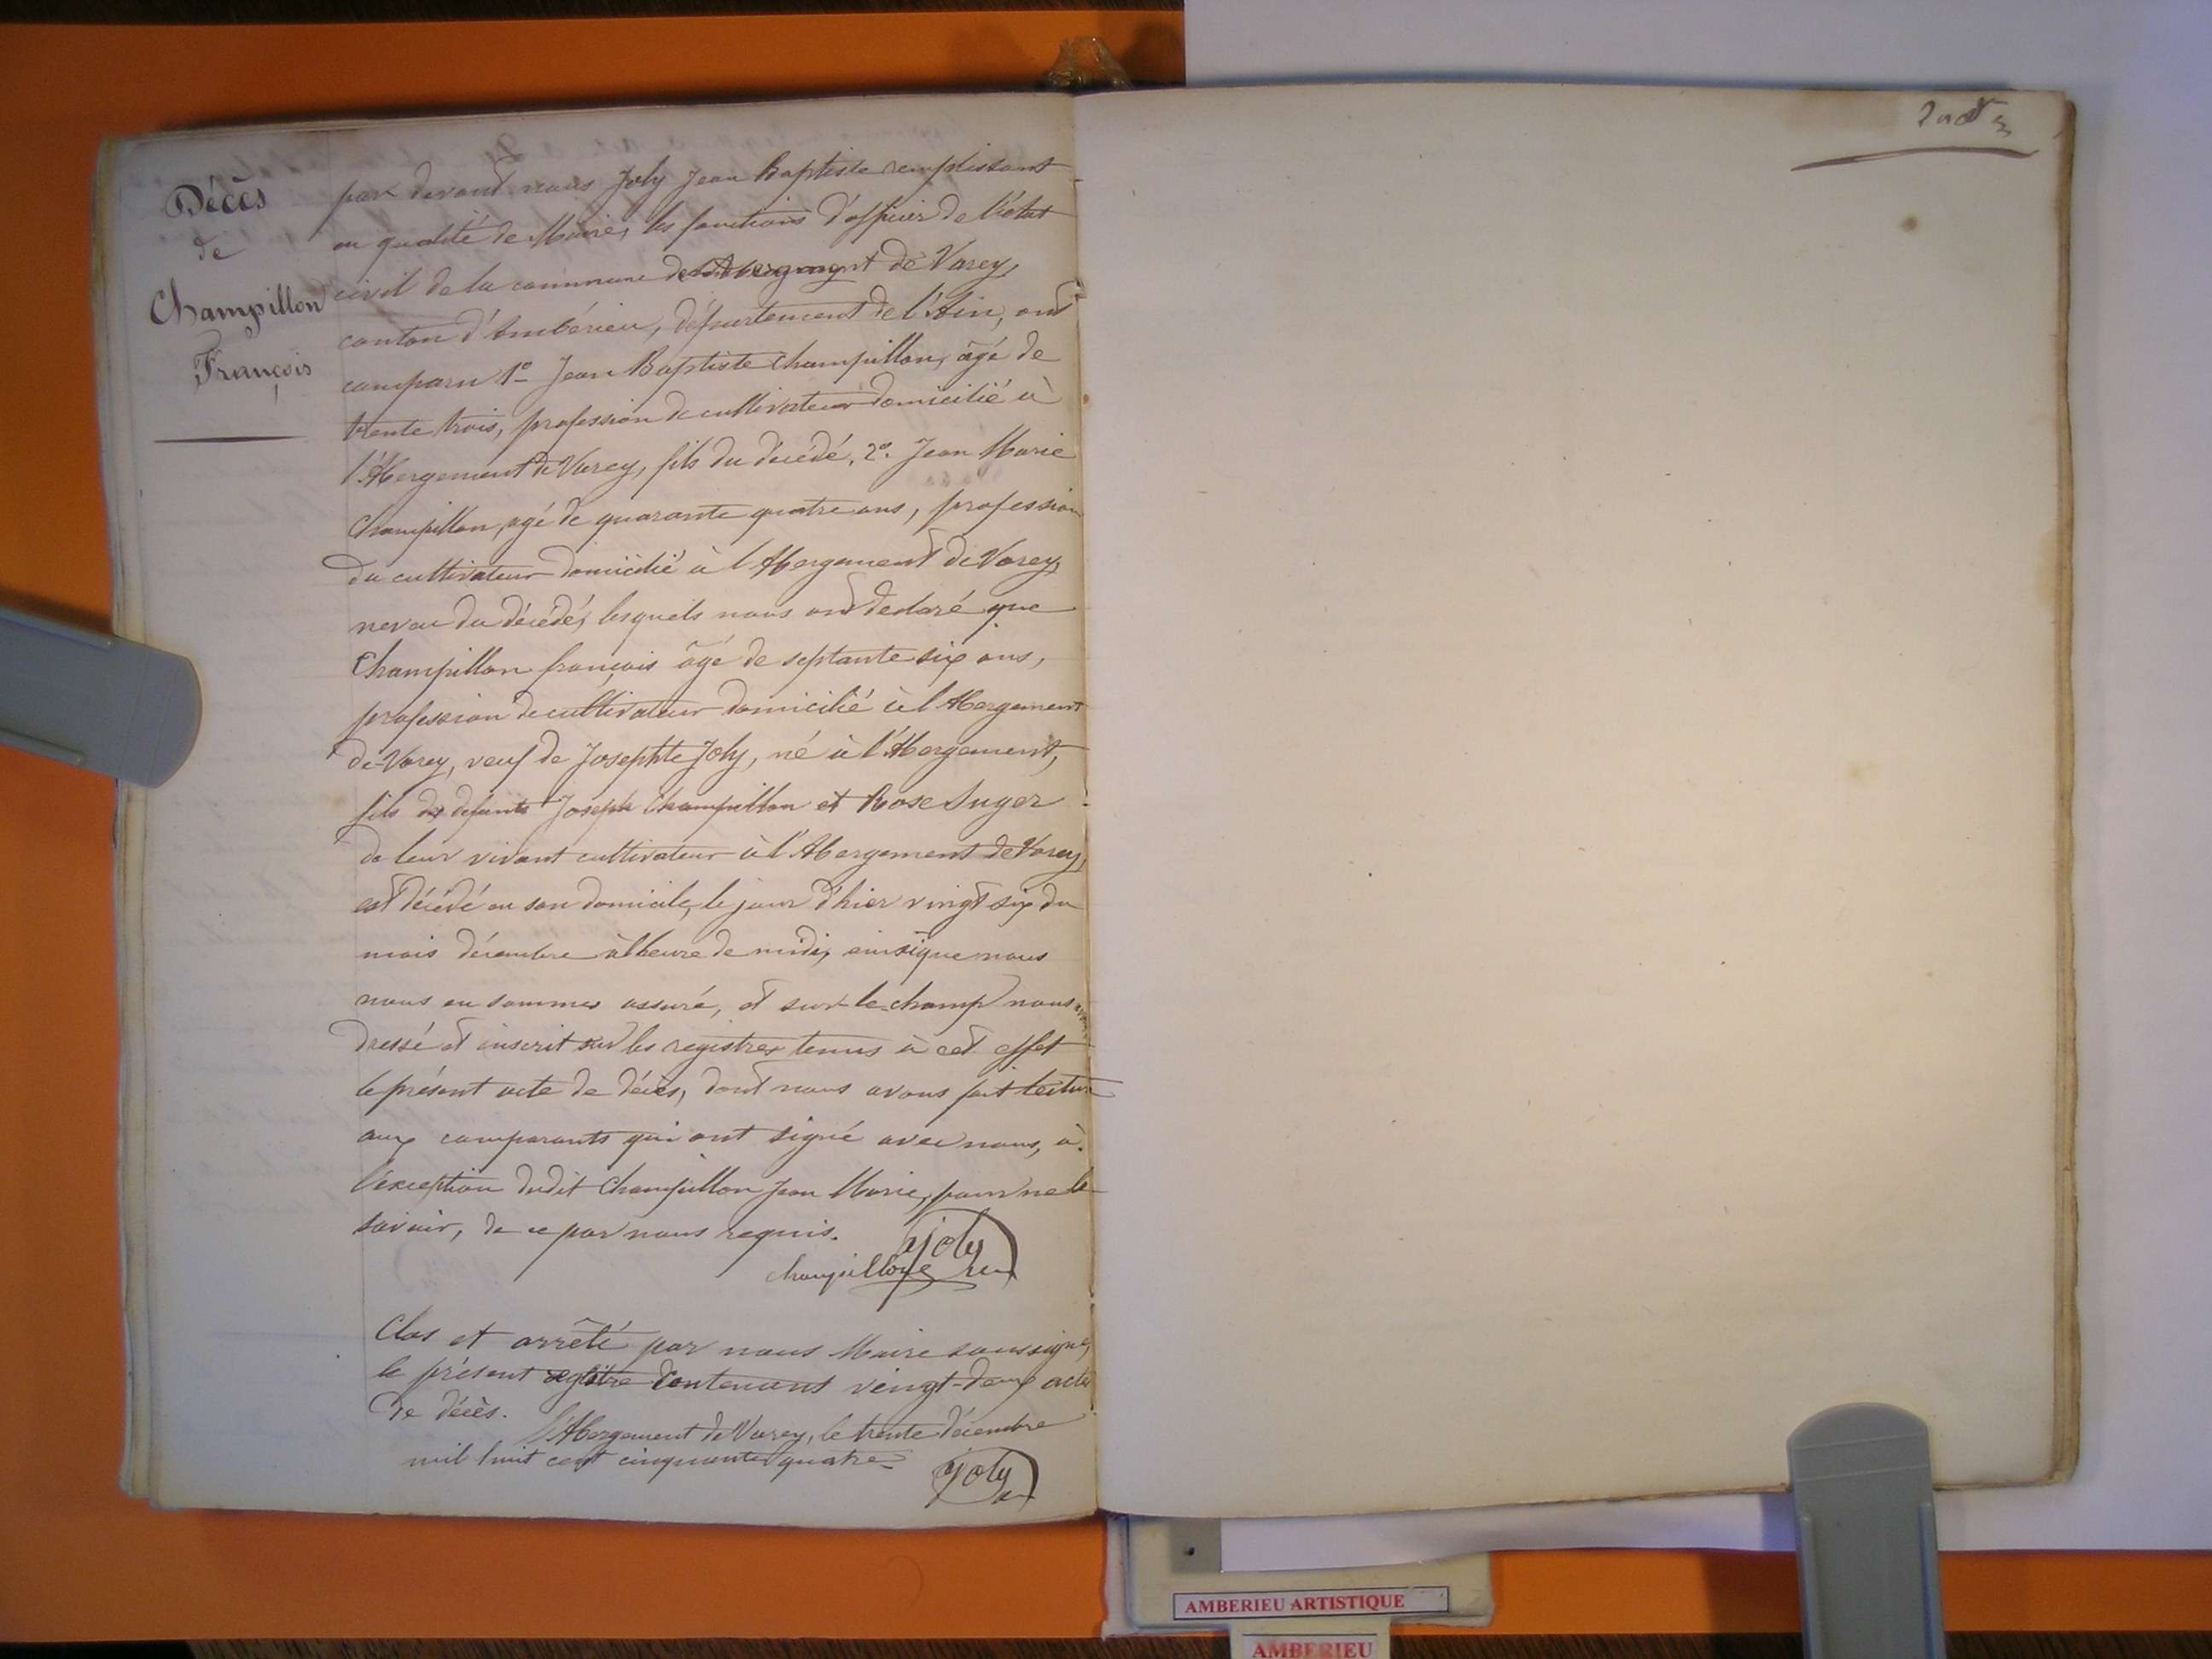 Décès
de
Champillon
François
par devant nous Joly Jean Baptiste remplissant
en qualité de Maire, les fonctions d'officier de l'état
civil de la commune de l'Abergement de Varey,
canton d'Ambérieu, département de l'Ain, ont
comparu 1º Jean Baptiste Champillon, âgé de
trente trois, profession de cultivateur domicilié à
l'Abergement de Varey, fils du décédé, 2º. Jean Marie
Champillon, agé de quarante quatre ans, profession
de cultivateur domicilié à l'Abergement de Varey,
neveu du décédé, lesquels nous ont declaré que
Champillon françois âgé de septante six ans,
profession de cultivateur domicilié à l'Abergement
de Varey, veuf de Josephte Joly, né à l'Abergement,
fils des defunts Joseph Champillon et Rose Suger
de leur vivant cultivateur à l'Abergement de Varey,
est décédé en son domicile, le jour d'hier vingt six du
mois décembre à l'heure de midi, ainsi que nous
nous en sommes assuré, et sur-le-champ nous avons
dressé et inscrit sur les registres tenus à cet effet
le présent acte de décès, dont nous avons fait lecture
aux comparants qui ont signé avec nous, à
l'exception dudit Champillon Jean Marie, pour ne le
savoir, de ce par nous requis.
Joly
champillon
Clos et arrêté par nous Maire soussigné,
le présent registre contenant vingt-deux actes
de décès.
l'Abergement de Varey, le trente décembre
mil huit cent cinquante quatre
Joly
AMBERIEU ARTISTIQUE
AMBERIEU